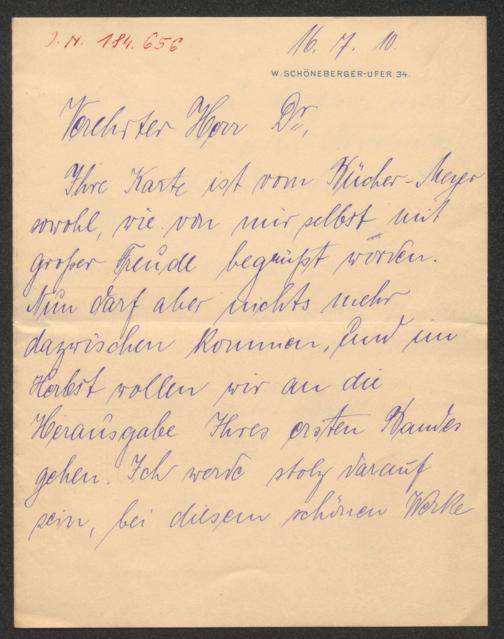 J. N. 184.656
16. 7. 10.
W. SCHÖNEBERGER-UFER 34.
Verehrter Herr Dr,
Ihre Karte ist vom Bücher-Meyer
sowohl, wie von mir selbst mit
großer Freude begrüßt worden.
Nun darf aber nichts mehr
dazwischen kommen, und im
Herbst wollen wir an die
Herausgabe Ihres ersten Bandes
gehen. Ich werde stolz darauf
sein, bei diesem schönen Werke